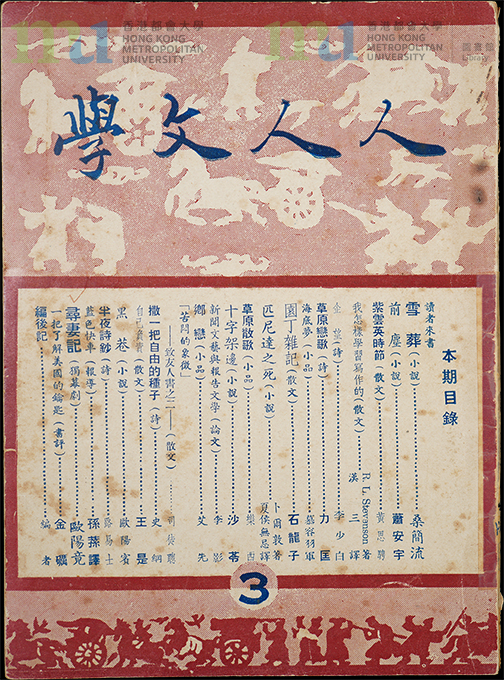 香港都會大學
HONG KONG
METROPOLITAN
UNIVERSITY
香港都會大學
HONG KONG
METROPOLITAN
UNIVERSITY
圖書館
Library
人人文學
本期目錄
讀者來書
雪葬(小說)……桑簡流
前塵(小說)……蕭安宇
紫雲英時節(散文)……黃思騁
我怎樣學習寫作的(散文)……R. L. Stevenson著
漢三譯
企望(詩)……李少白
草原戀歌(詩)……力匡
海底夢(小品)……慕容羽軍
園丁雜記(散文)……石龍子
匹尼達之死(小說)……卜爾敦著
夏侯無忌譯
草原散歌(小品)……
十字架邊(小說)……沙
新聞文藝與報告文學(論文)……李影
鄉戀(小品)……艾先
「苦悶的象徵」
——致友人書之二——(散文)……
撒一把自由的種子(詩)……史綱
自己(散文)……王是
黑巷(小說)……歐陽賓
半夜詩鈔(詩)……路易士
藍色快車(報導)……孫蓀譯
尋妻記(獨幕劇)……歐陽竟
一把了解美國的鑰匙(書評)……金礦
編後記……編者
3